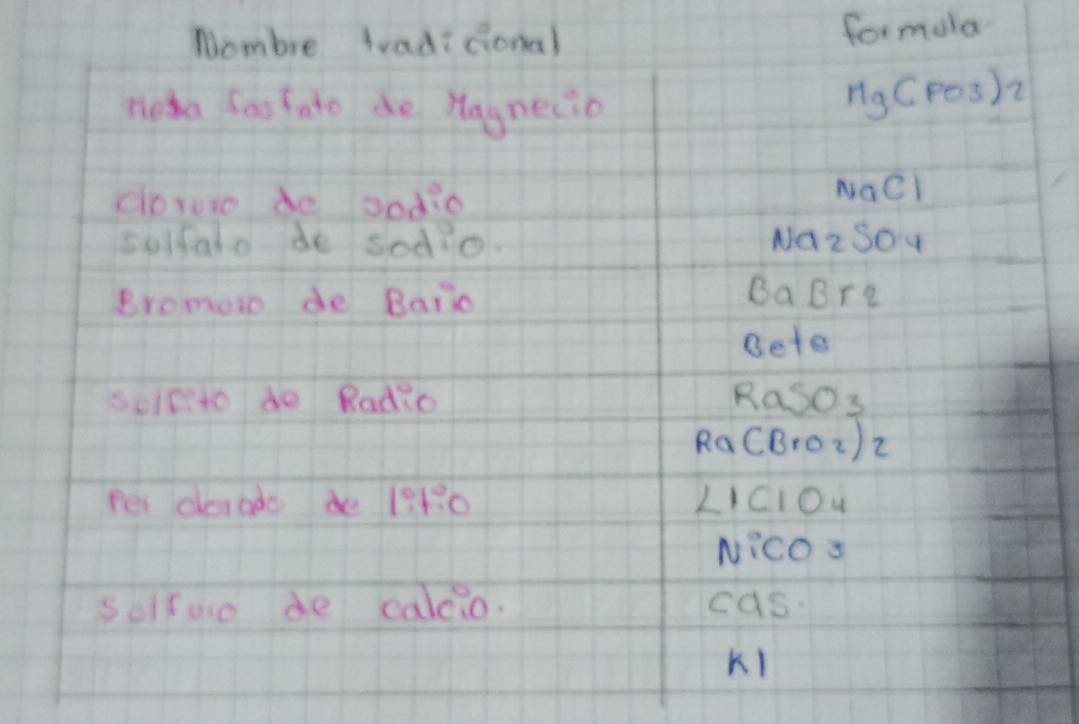 Nombre tradicional formula
meta fosfato de Magnecio Mg(PO3)2
cloruro de sodio NaCl
sulfato de sodio. Na2SO4
Bromuro de Bario BaBr2
BeTe
sulfito de Radio RaSO3
Ra(BrO2)2
Per clorado de litio LiClO4
NiCO3
sulfuro de calcio. cas.
KI